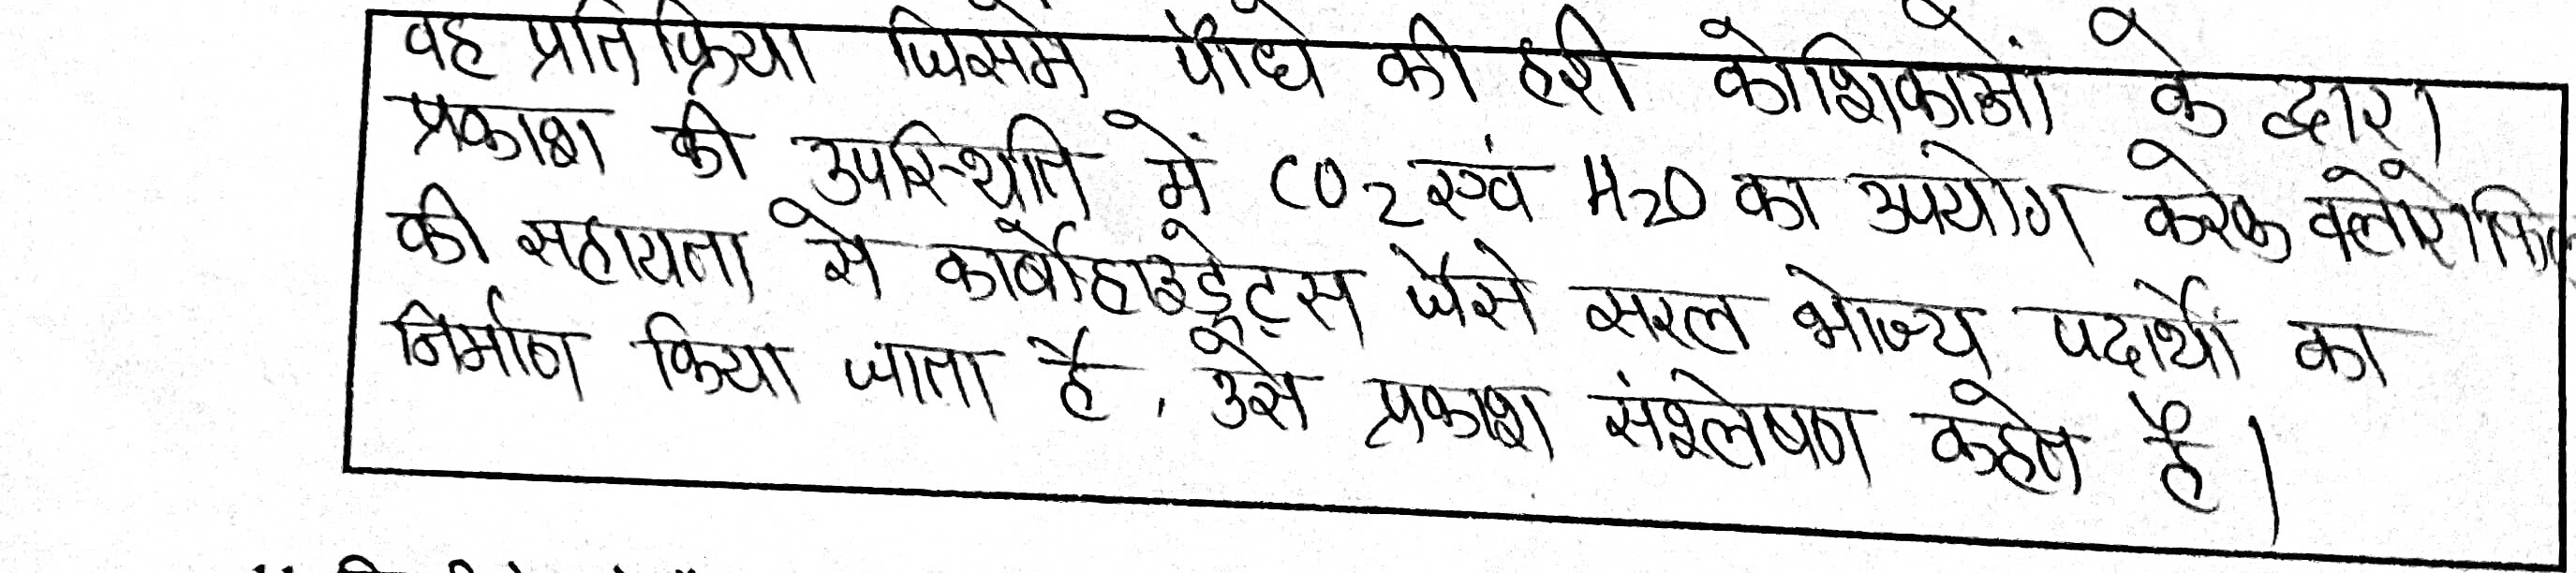 वह प्रतिक्रिया जिसमें पौधे की हरी कोशिकाओं के द्वारा
प्रकाश की उपस्थिति में CO2 एवं H2O का उपयोग करके क्लोरोफिल
की सहायता से कार्बोहाइड्रेट्स जैसे सरल भोज्य पदार्थों का
निर्माण किया जाता है, उसे प्रकाश संश्लेषण कहते है।